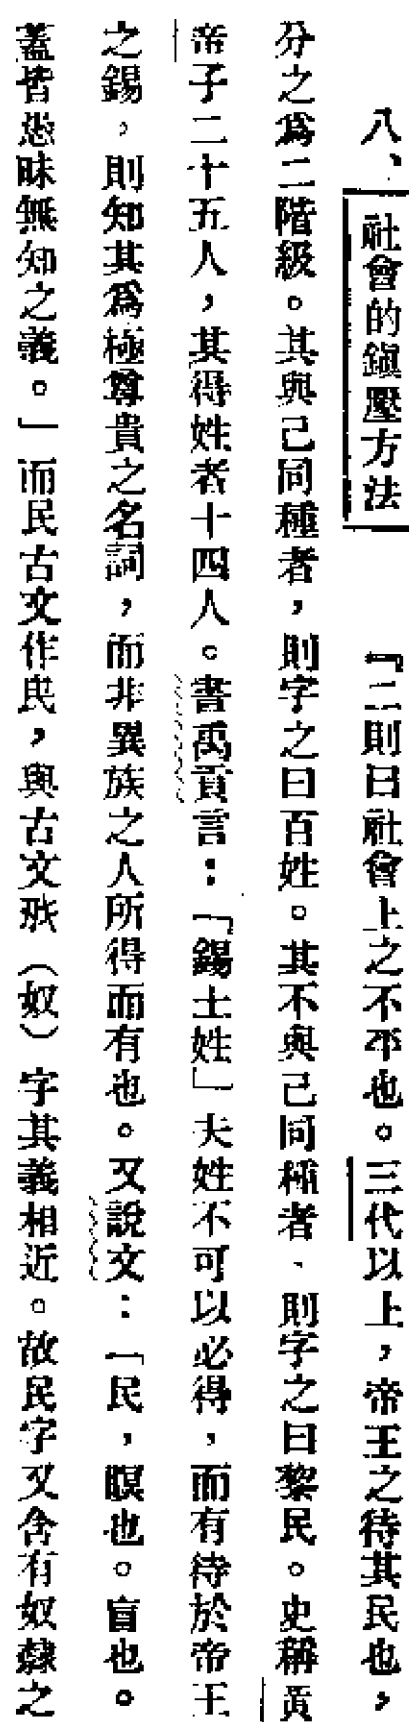 八、社會的鎭壓方法　『二則曰社會上之不平也。三代以上，帝王之待其民也，
分之爲二階級。其與己同種者，則字之曰百姓。其不與己同種者、則字之曰黎民。史稱黃
帝子二十五人，其得姓者十四人。書禹貢言：「錫土姓」夫姓不可以必得，而有待於帝王
之錫，則知其爲極尊貴之名詞，而非異族之人所得而有也。又說文：「民，瞑也。盲也。
蓋皆愚昧無知之義。」而民古文作㞶，與古文㚢（奴）字其義相近。故民字又含有奴隸之